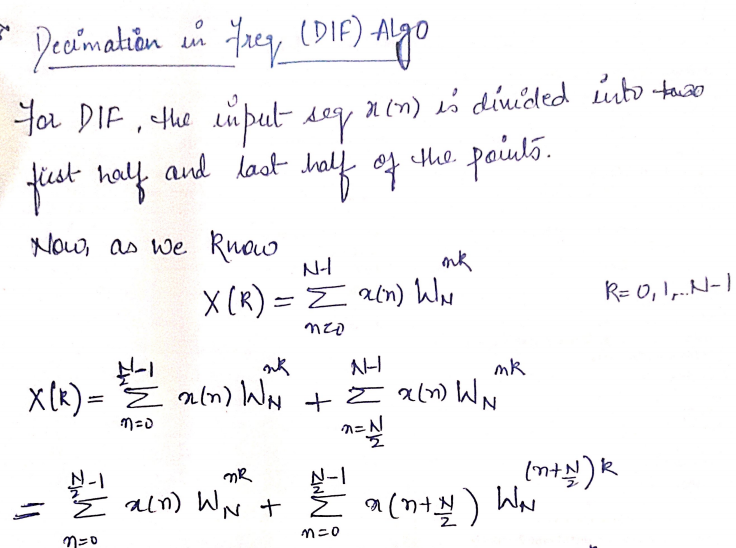 Decimation in freq (DIF) Algo
For DIF, the input seq x(n) is divided into two
first half and last half of the points.
Now, as we know
X(k) = Σ_{n=0}^{N-1} x(n) W_N^{nk}    k = 0, 1, ... N-1
X(k) = Σ_{n=0}^{N/2-1} x(n) W_N^{nk} + Σ_{n=N/2}^{N-1} x(n) W_N^{nk}
= Σ_{n=0}^{N/2-1} x(n) W_N^{nk} + Σ_{n=0}^{N/2-1} x(n+N/2) W_N^{(n+N/2)k}